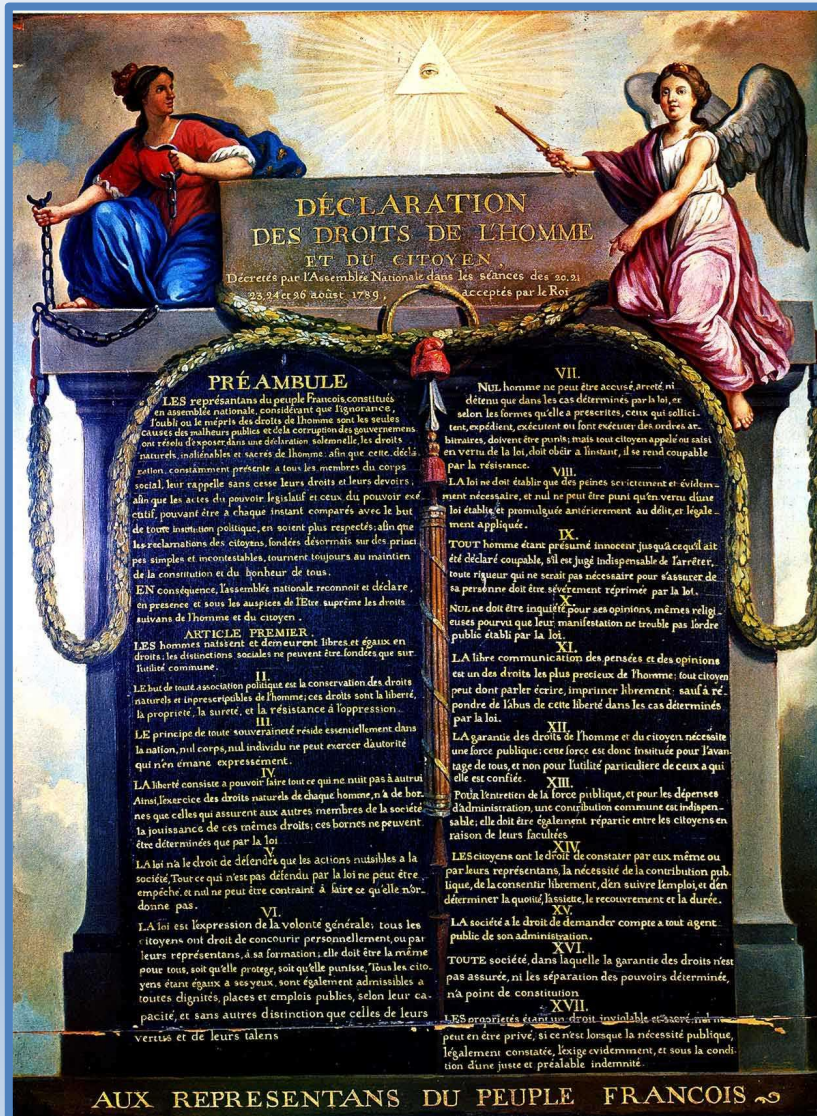 DÉCLARATION
DES DROITS DE L'HOMME
ET DU CITOYEN,
Décretés par l'Assemblée Nationale dans les séances des 20, 21
23, 24 et 26 août 1789, acceptés par le Roi
PRÉAMBULE
LES représantans du peuple Francois, constitués
en assemblée nationale, considérant que l'ignorance,
l'oubli ou le mépris des droits de l'homme sont les seules
causes des malheurs publics et de la corruption des gouvernemens
ont résolu d'exposer dans une déclaration solemnelle, les droits
naturels, inaliénables et sacrés de l'homme; afin que cette décla-
ration, constamment présente a tous les membres du corps
social, leur rappelle sans cesse leurs droits et leurs devoirs;
afin que les actes du pouvoir législatif et ceux du pouvoir exé-
cutif, pouvant être à chaque instant comparés avec le but
de toute institution politique, en soient plus respectés; afin que
les reclamations des citoyens, fondées désormais sur des princi
pes simples et incontestables, tournent toujours au maintien
de la constitution et du bonheur de tous.
EN conséquence, l'assemblée nationale reconnoit et déclare,
en presence et sous les auspices de l'Etre suprême les droits
suivans de l'homme et du citoyen.
ARTICLE PREMIER.
LES hommes naissent et demeurent libres et égaux en
droits; les distinctions sociales ne peuvent être fondées que sur
l'utilité commune.
II.
LE but de toute association politique est la conservation des droits
naturels et inprescriptibles de l'homme; ces droits sont la liberté,
la propriete, la sureté, et la résistance à l'oppression.
III.
LE principe de toute souveraineté réside essentiellement dans
la nation, nul corps, nul individu ne peut exercer d'autorité
qui n'en émane expressément.
IV.
LA liberté consiste a pouvoir faire tout ce qui ne nuit pas à autrui
Ainsi, l'exercice des droits naturels de chaque homme, n'a de bor-
nes que celles qui assurent aux autres membres de la société
la jouissance de ces mêmes droits; ces bornes ne peuvent
être déterminées que par la loi
V.
LA loi n'a le droit de défendre que les actions nuisibles a la
société, Tout ce qui n'est pas défendu par la loi ne peut être
empêché, et nul ne peut être contraint à faire ce qu'elle n'or-
donne pas.
VI.
LA loi est l'expression de la volonté générale; tous les
citoyens ont droit de concourir personnellement, ou par
leurs représentans, à sa formation; elle doit être la même
pour tous, soit qu'elle protege, soit qu'elle punisse, Tous les cito-
yens étant égaux a ses yeux, sont également admissibles a
toutes dignités, places et emplois publics, selon leur ca-
pacité, et sans autres distinction que celles de leurs
vertus et de leurs talens
VII.
NUL homme ne peut être accusé, arreté, ni
détenu que dans les cas déterminés par la loi, et
selon les formes qu'elle a prescrites, ceux qui sollici-
tent, expédient, exécutent ou font exécuter des ordres ar-
bitraires, doivent être punis; mais tout citoyen appelé ou saisi
en vertu de la loi, doit obéir a l'instant, il se rend coupable
par la résistance.
VIII.
LA loi ne doit établir que des peines strictement et évidem-
ment nécessaire, et nul ne peut être puni qu'en vertu d'une
loi établie et promulguée antérierement au délit, et légale-
ment appliquée.
IX.
TOUT homme étant présumé innocent jusqu'à ce qu'il ait
été déclaré coupable, s'il est jugé indispensable de l'arrêter,
toute rigueur qui ne serait pas nécessaire pour s'assurer de
sa personne doit être sévèrement réprimée par la loi.
X.
NUL ne doit être inquiété pour ses opinions, mêmes religi-
euses pourvu que leur manifestation ne trouble pas l'ordre
public établi par la loi.
XI.
LA libre communication des pensées et des opinions
est un des droits les plus precieux de l'homme; tout citoyen
peut donc parler écrire, imprimer librement: sauf à ré-
pondre de l'abus de cette liberté dans les cas déterminés
par la loi.
XII.
LA garantie des droits de l'homme et du citoyen nécessite
une force publique; cette force est donc instituée pour l'avan-
tage de tous, et non pour l'utilité particuliere de ceux a qui
elle est confiée.
XIII.
POUR l'entretien de la force publique, et pour les dépenses
d'administration, une contribution commune est indispen-
sable; elle doit être également répartie entre les citoyens en
raison de leurs facultées
XIV.
LES citoyens ont le droit de constater par eux même ou
par leurs représentans, la nécessité de la contribution pub-
lique, de la consentir librement, d'en suivre l'emploi, et d'en
déterminer la quotité, l'assiette, le recouvrement et la durée.
XV.
LA société a le droit de demander compte a tout agent
public de son administration.
XVI.
TOUTE société, dans laquelle la garantie des droits n'est
pas assurée, ni les séparation des pouvoirs déterminée,
n'a point de constitution
XVII.
LES proprietés étant un droit inviolable et sacré, nul ne
peut en être privé, si ce n'est lorsque la nécessité publique,
légalement constatée, l'exige evidemment, et sous la condi-
tion d'une juste et préalable indemnité.
AUX REPRESENTANS DU PEUPLE FRANCOIS